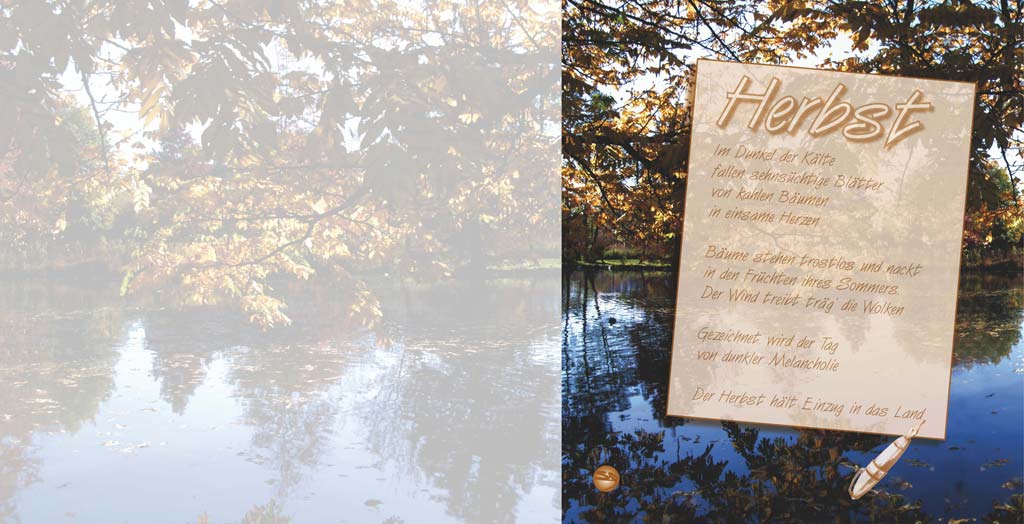 Herbst
Im Dunkel der Kälte
fallen sehnsüchtige Blätter
von kahlen Bäumen
in einsame Herzen
Bäume stehen trostlos und nackt
in den Früchten ihres Sommers
Der Wind treibt träg' die Wolken
Gezeichnet wird der Tag
von dunkler Melancholie
Der Herbst hält Einzug in das Land